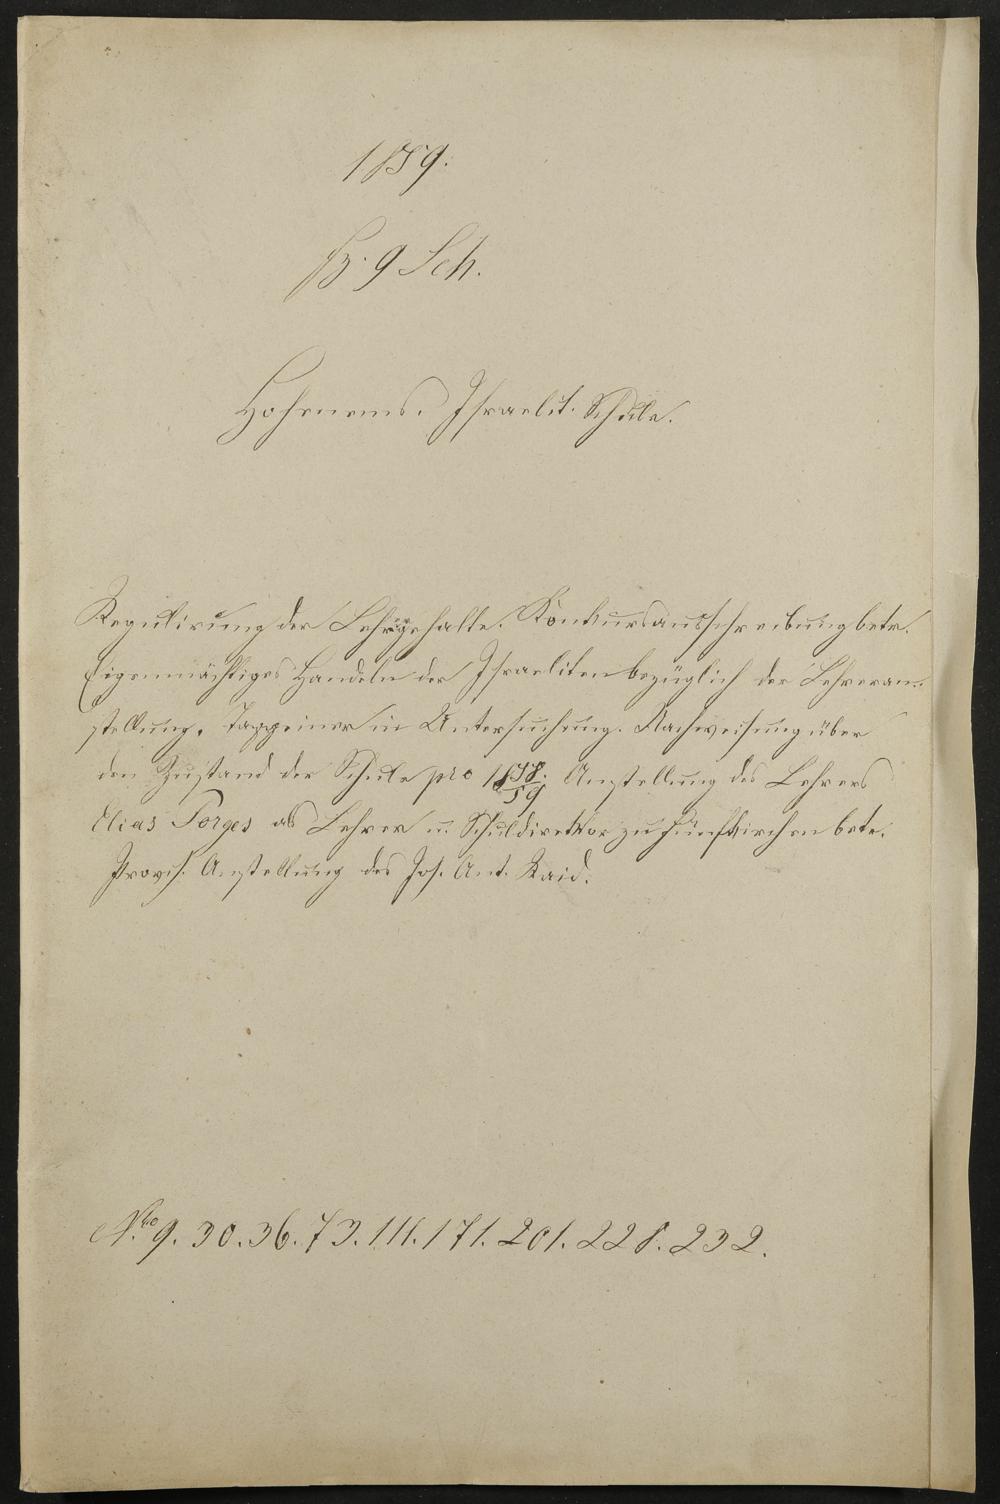 1859.
9 Sch.
Hohenems. Israelit. Schule.
Regulirung der Lehrgehalte. Konkursausschreibung betr.
Eigenmächtiges Handeln der Israeliten bezüglich der Lehreran-
stellung. Tappeiner in Untersuchung. Nachweisung über
den Zustand der Schule pro 1858/59 Anstellung des Lehrers
Elias Porges als Lehrer u. Schuldirektor zu Fünfkirchen betr.
Provis. Anstellung des Jos. Ant. Kaid.
Nro 9. 30. 36. 73. 111. 171. 201. 228. 232.